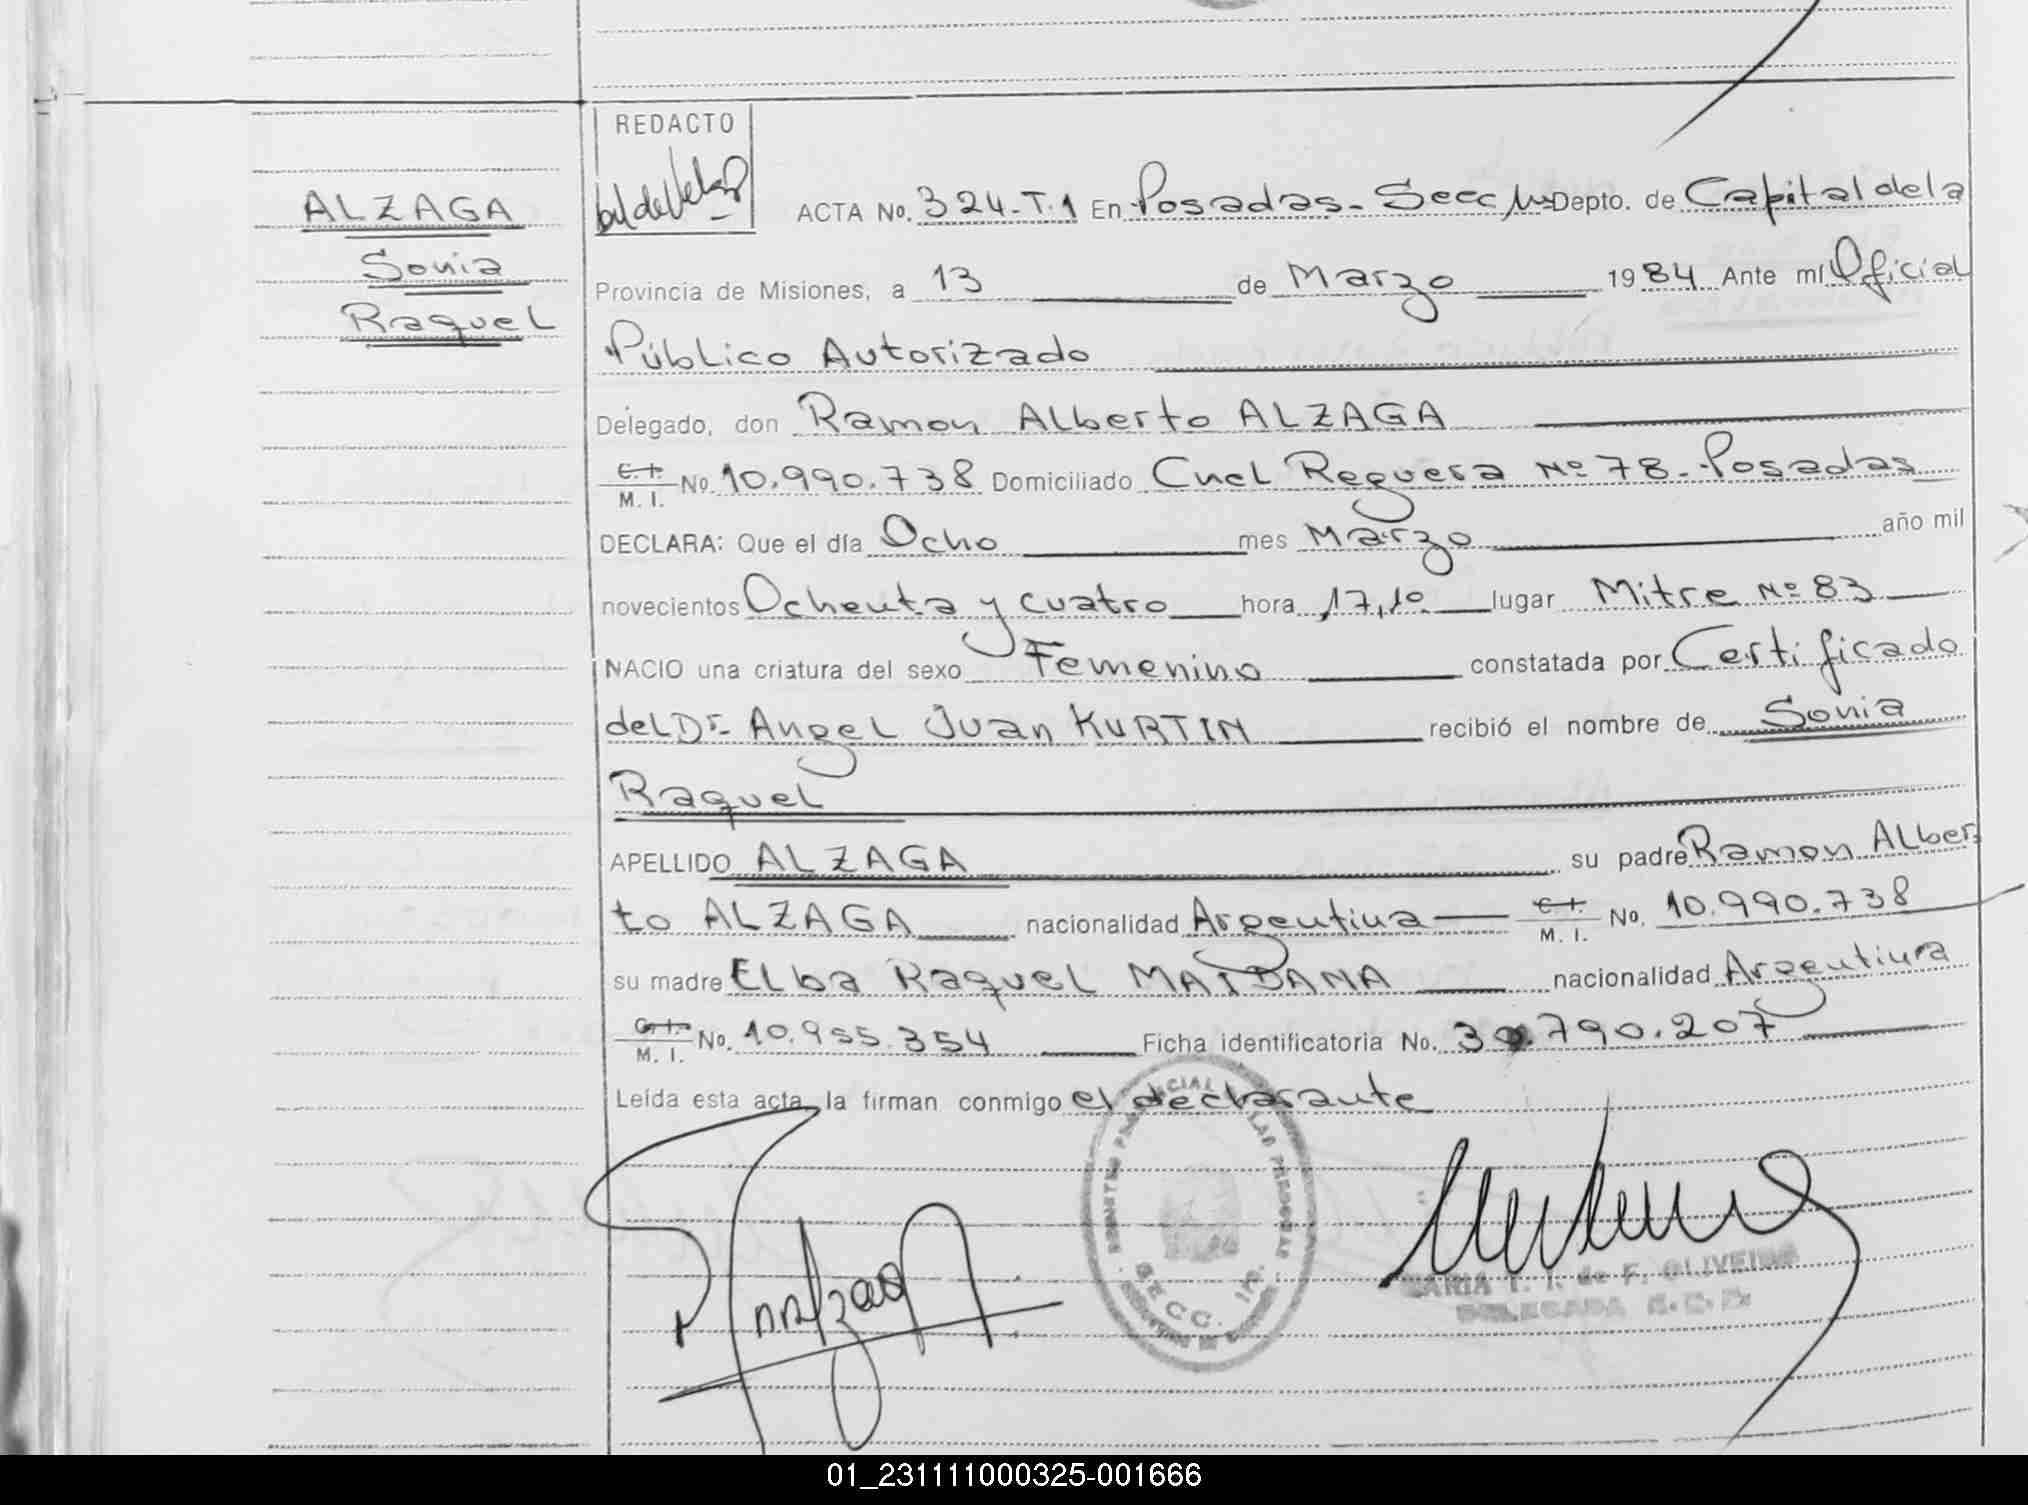 REDACTO
ALZAGA
Sonia
Raquel
ACTA No. 324-T.1 En Posadas - Secc Depto. de Capital de la
Provincia de Misiones, a 13 de Marzo 1984 Ante mí Oficial
Público Autorizado
Delegado, don Ramon Alberto ALZAGA
C. I. / M. I. No. 10.990.738 Domiciliado Cnel Reguera Nº 78 - Posadas
DECLARA: Que el día Ocho mes Marzo año mil
novecientos Ochenta y cuatro hora 17,10 lugar Mitre Nº 83
NACIO una criatura del sexo Femenino constatada por Certificado
del Dr. Angel Juan KURTIN recibió el nombre de Sonia
Raquel
APELLIDO ALZAGA su padre Ramon Alber
to ALZAGA nacionalidad Argentina C. I. / M. I. No. 10.990.738
su madre Elba Raquel MAIDANA nacionalidad Argentina
C. I. / M. I. No. 10.955.354 Ficha identificatoria No. 30.790.207
Leída esta acta, la firman conmigo el declarante
SECC. 1ra.
MARIA T. I. de F. OLIVEIRA
DELEGADA
01_231111000325-001666